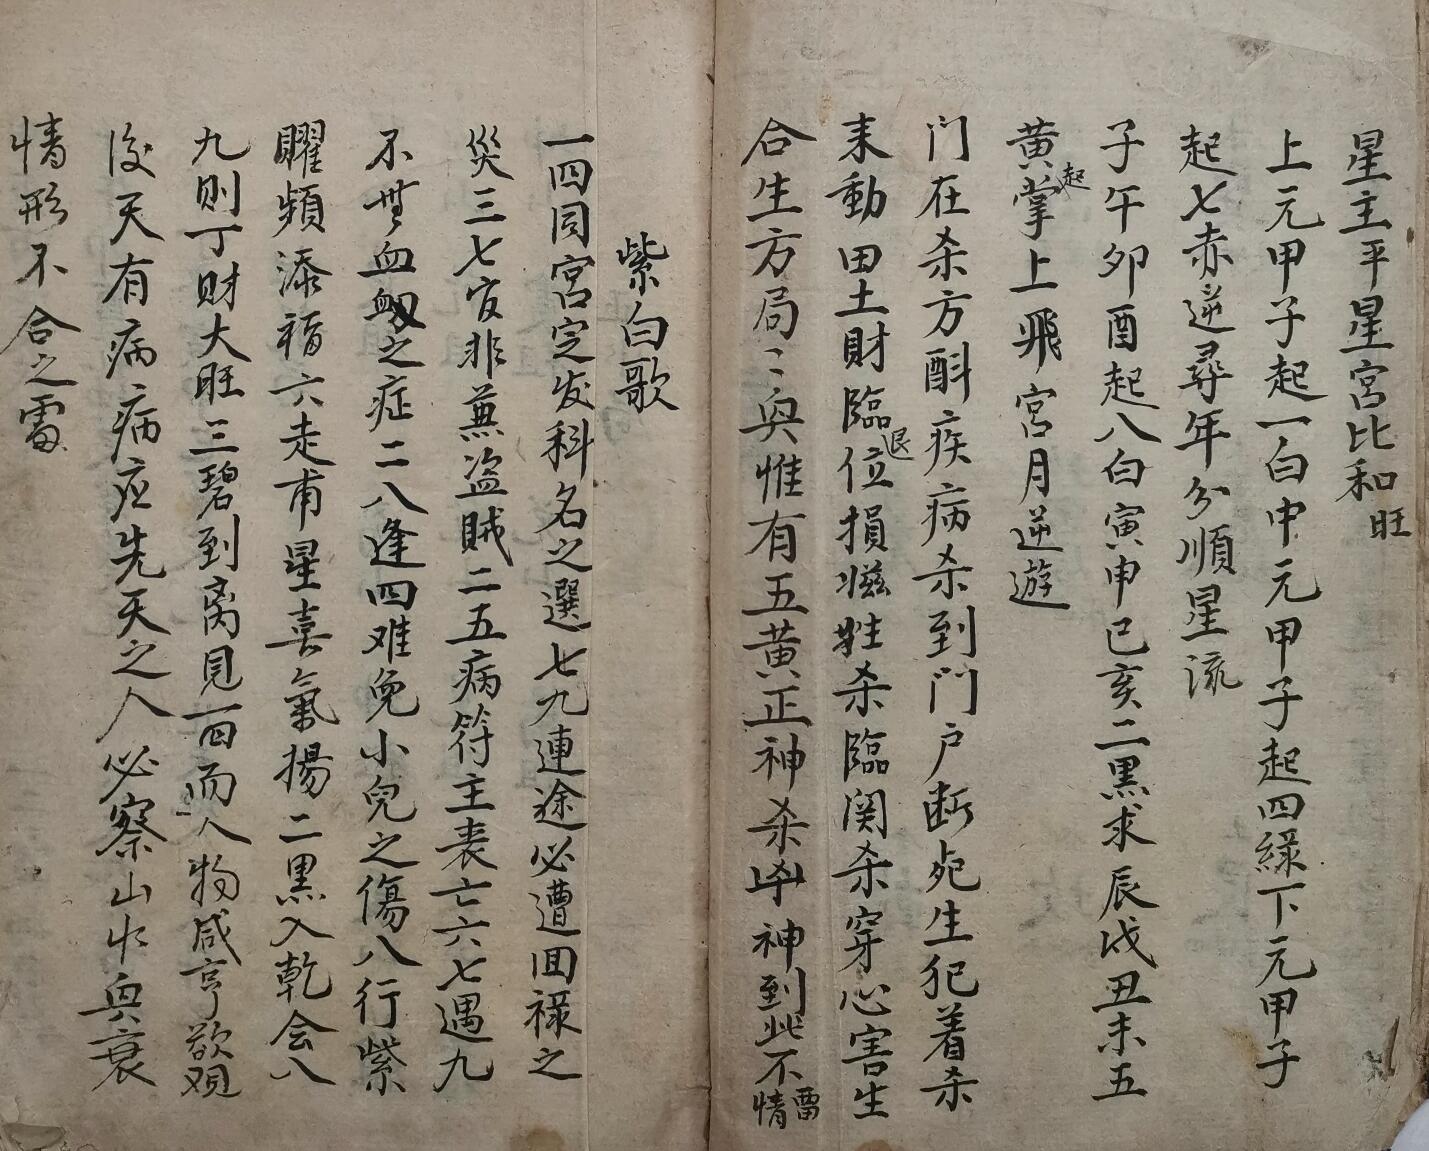 星主平星星宫比和旺
上元甲子起一白中元甲子起四绿下元甲子
起七赤逆尋年分順星流
子午卯酉起八白寅申巳亥二黑求辰戌丑未五
黄起掌上飛宮月逆遊
门在杀方斟疾病杀到门户断死生犯着杀
来動田土財臨位退損滋牲杀臨関杀穿心害生
合生方局〻與惟有五黄正神杀凶神到此不畱情
紫白歌
一四同宮定发科名之選七九連途必遭囬禄之
災三七官非兼盗賊二五病符主丧亡六七遇九
不無血衂之症二八逢四难免小児之傷八行紫
曜頻添福六走甫星喜氣揚二黒入乾会八
九则丁财大旺三碧到离見一四而人物咸亨欲观
後天有病病应先天之人必察山水與衰
情形不合之處